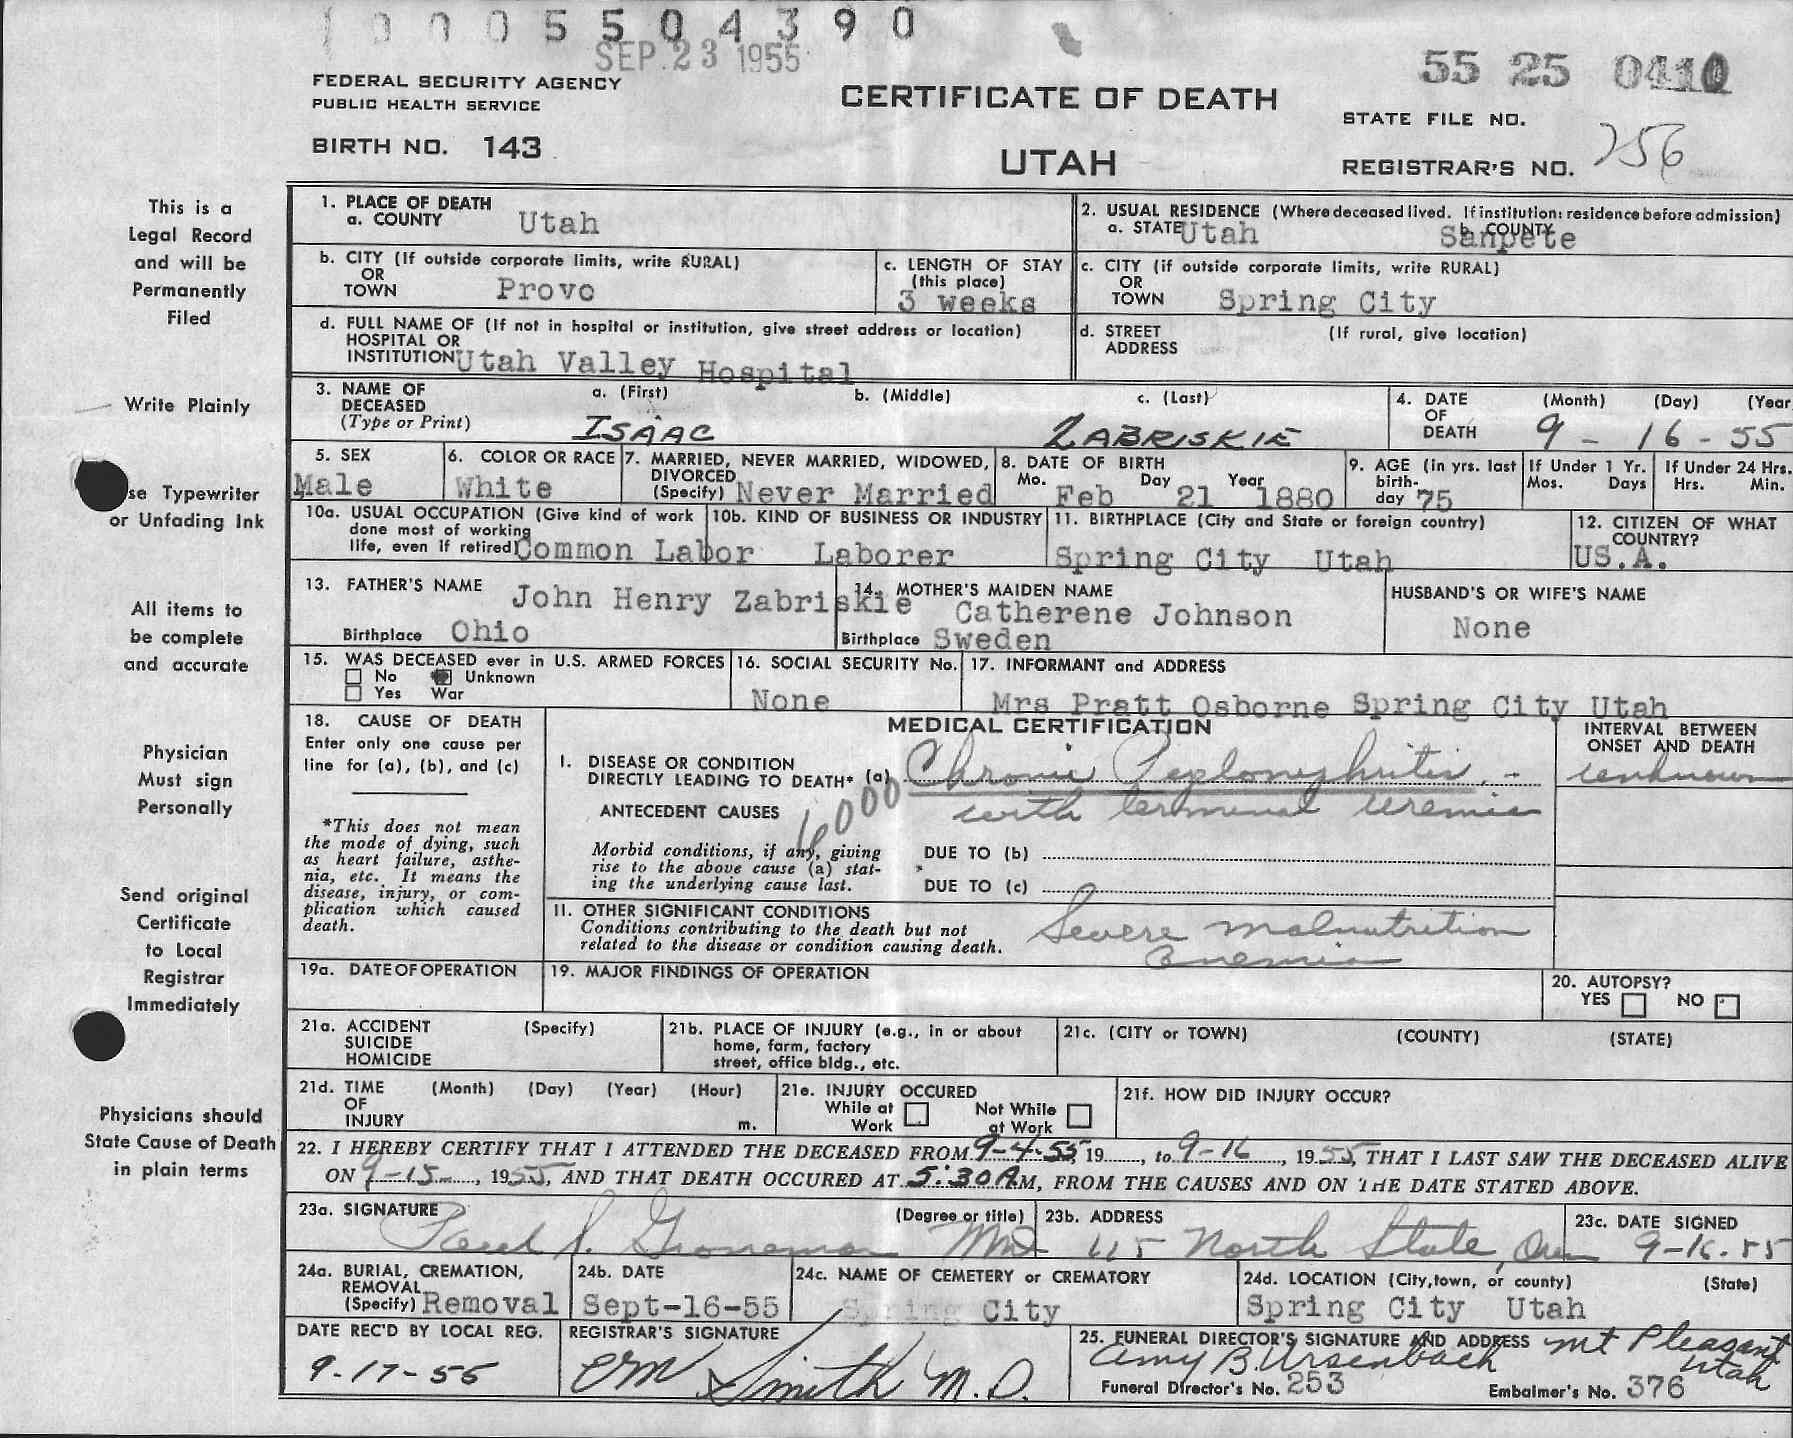 1 0 0 0 5 5 0 4 3 9 0
SEP 23 1955
55 25 0410
FEDERAL SECURITY AGENCY
PUBLIC HEALTH SERVICE
CERTIFICATE OF DEATH
STATE FILE NO.
BIRTH NO. 143
UTAH
REGISTRAR'S NO. 256
This is a
Legal Record
and will be
Permanently
Filed
Write Plainly
se Typewriter
or Unfading Ink
All items to
be complete
and accurate
Physician
Must sign
Personally
Send original
Certificate
to Local
Registrar
Immediately
Physicians should
State Cause of Death
in plain terms
1. PLACE OF DEATH
a. COUNTY Utah
2. USUAL RESIDENCE (Where deceased lived. If institution: residence before admission)
a. STATE Utah b. COUNTY Sanpete
b. CITY (If outside corporate limits, write RURAL)
OR
TOWN Provo
c. LENGTH OF STAY
(this place)
3 weeks
c. CITY (if outside corporate limits, write RURAL)
OR
TOWN Spring City
d. FULL NAME OF (If not in hospital or institution, give street address or location)
HOSPITAL OR
INSTITUTION Utah Valley Hospital
d. STREET (If rural, give location)
ADDRESS
3. NAME OF a. (First) b. (Middle) c. (Last)
DECEASED
(Type or Print) ISAAC ZABRISKIE
4. DATE (Month) (Day) (Year
OF
DEATH 9 - 16 - 55
5. SEX
Male
6. COLOR OR RACE
White
7. MARRIED, NEVER MARRIED, WIDOWED,
DIVORCED
(Specify) Never Married
8. DATE OF BIRTH
Mo. Day Year
Feb 21 1880
9. AGE (in yrs. last
birth-
day 75
If Under 1 Yr.
Mos. Days
If Under 24 Hrs.
Hrs. Min.
10a. USUAL OCCUPATION (Give kind of work
done most of working
life, even if retired) Common Labor
10b. KIND OF BUSINESS OR INDUSTRY
Laborer
11. BIRTHPLACE (City and State or foreign country)
Spring City Utah
12. CITIZEN OF WHAT
COUNTRY?
US.A.
13. FATHER'S NAME John Henry Zabriskie
Birthplace Ohio
14. MOTHER'S MAIDEN NAME
Catherene Johnson
Birthplace Sweden
HUSBAND'S OR WIFE'S NAME
None
15. WAS DECEASED ever in U.S. ARMED FORCES
No Unknown
Yes War
16. SOCIAL SECURITY No.
None
17. INFORMANT and ADDRESS
Mrs Pratt Osborne Spring City Utah
18. CAUSE OF DEATH
Enter only one cause per
line for (a), (b), and (c)
*This does not mean
the mode of dying, such
as heart failure, asthe-
nia, etc. It means the
disease, injury, or com-
plication which caused
death.
MEDICAL CERTIFICATION
I. DISEASE OR CONDITION
DIRECTLY LEADING TO DEATH* (a) Chronic Pyelonephritis -
with terminal uremia
6000
ANTECEDENT CAUSES
Morbid conditions, if any, giving
rise to the above cause (a) stat-
ing the underlying cause last.
DUE TO (b)
DUE TO (c)
II. OTHER SIGNIFICANT CONDITIONS
Conditions contributing to the death but not
related to the disease or condition causing death.
Severe malnutrition
Anemia
INTERVAL BETWEEN
ONSET AND DEATH
unknown
19a. DATE OF OPERATION
19. MAJOR FINDINGS OF OPERATION
20. AUTOPSY?
YES NO
21a. ACCIDENT (Specify)
SUICIDE
HOMICIDE
21b. PLACE OF INJURY (e.g., in or about
home, farm, factory
street, office bldg., etc.
21c. (CITY or TOWN) (COUNTY) (STATE)
21d. TIME (Month) (Day) (Year) (Hour)
OF
INJURY m.
21e. INJURY OCCURED
While at Work Not While at Work
21f. HOW DID INJURY OCCUR?
22. I HEREBY CERTIFY THAT I ATTENDED THE DECEASED FROM 9-4-55, 19......, to 9-16, 1955, THAT I LAST SAW THE DECEASED ALIVE
ON 9-15, 1955, AND THAT DEATH OCCURED AT 5:30 A M, FROM THE CAUSES AND ON THE DATE STATED ABOVE.
23a. SIGNATURE (Degree or title)
S. Groneman MD
23b. ADDRESS
115 North State,
23c. DATE SIGNED
9-16-55
24a. BURIAL, CREMATION,
REMOVAL
(Specify) Removal
24b. DATE
Sept-16-55
24c. NAME OF CEMETERY or CREMATORY
Spring City
24d. LOCATION (City, town, or county) (State)
Spring City Utah
DATE REC'D BY LOCAL REG.
9-17-55
REGISTRAR'S SIGNATURE
Smith M.D.
25. FUNERAL DIRECTOR'S SIGNATURE AND ADDRESS Mt Pleasant
Amy B. Ursenbach Utah
Funeral Director's No. 253 Embalmer's No. 376